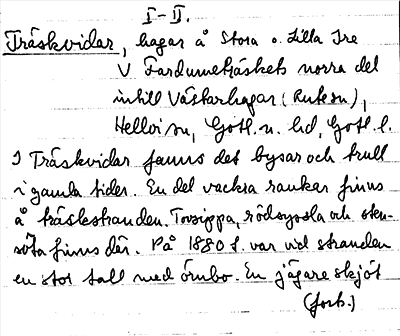 I-II.
Träskvidar, hagar å Stora o. Lilla Ire
V Fardumeträskets norra del
intill Västerhagar (Rute sn),
Hellvi sn, Gotl. n. hd, Gotl. l.
I Träskvidar fanns det bysar och trull
i gamla tider. En del vackra raukar finns
å träskstranden. Tovsippa, rödsyssla och sten-
söta finns där. På 1880 t. var vid stranden
en stor tall med örnbo. En jägare skjöt
(forts.)